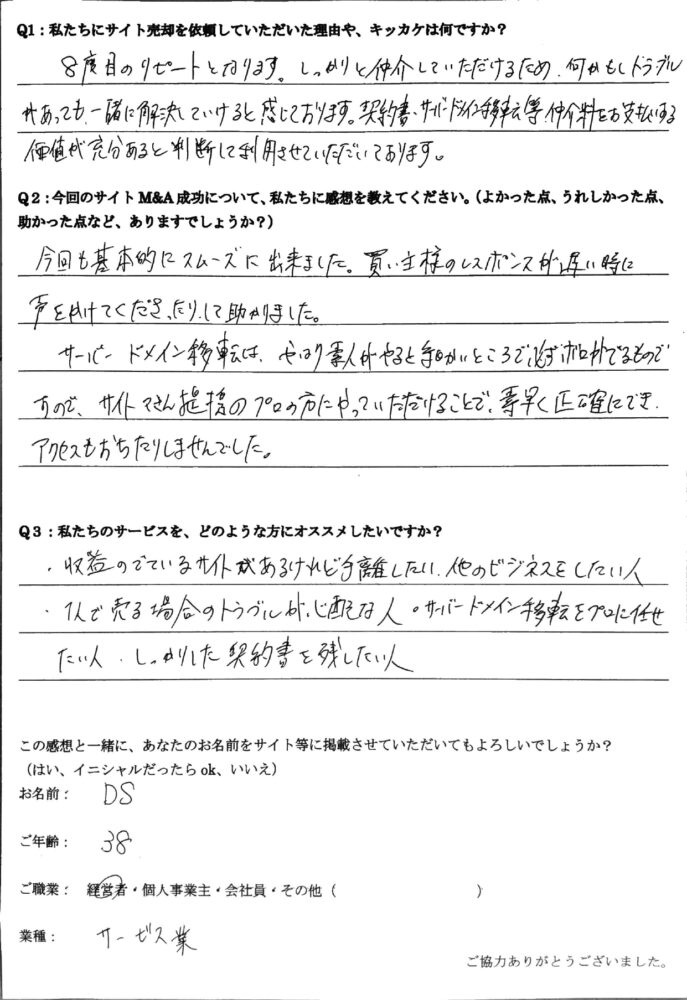 Q1：私たちにサイト売却を依頼していただいた理由や、キッカケは何ですか？
8度目のリピートとなります。しっかりと仲介していただけるため、何かもしトラブル
があっても、一緒に解決していけると感じております。契約書・サーバードメイン移転等、仲介料をお支払いする
価値が充分あると判断して利用させていただいております。
Q2：今回のサイト M&A 成功について、私たちに感想を教えてください。（よかった点、うれしかった点、
助かった点など、ありますでしょうか？）
今回も基本的にスムーズに出来ました。買い主様のレスポンスが遅い時に
声をかけてくださったりして助かりました。
サーバー ドメイン移転は、やはり素人がやると細かいところで必ずボロがでるもので
すので、サイトマさん提携のプロの方にやっていただけることで、素早く正確にでき、
アクセスもおちたりしませんでした。
Q3：私たちのサービスを、どのような方にオススメしたいですか？
・収益のでているサイトがあるけれど手離したい、他のビジネスをしたい人
・1人で売る場合のトラブルが心配な人 ・サーバードメイン移転をプロに任せ
たい人 ・しっかりした契約書を残したい人
この感想と一緒に、あなたのお名前をサイト等に掲載させていただいてもよろしいでしょうか？
（はい、イニシャルだったら ok、いいえ）
お名前： DS
ご年齢： 38
ご職業： 経営者・個人事業主・会社員・その他（ ）
業種： サービス業
ご協力ありがとうございました。